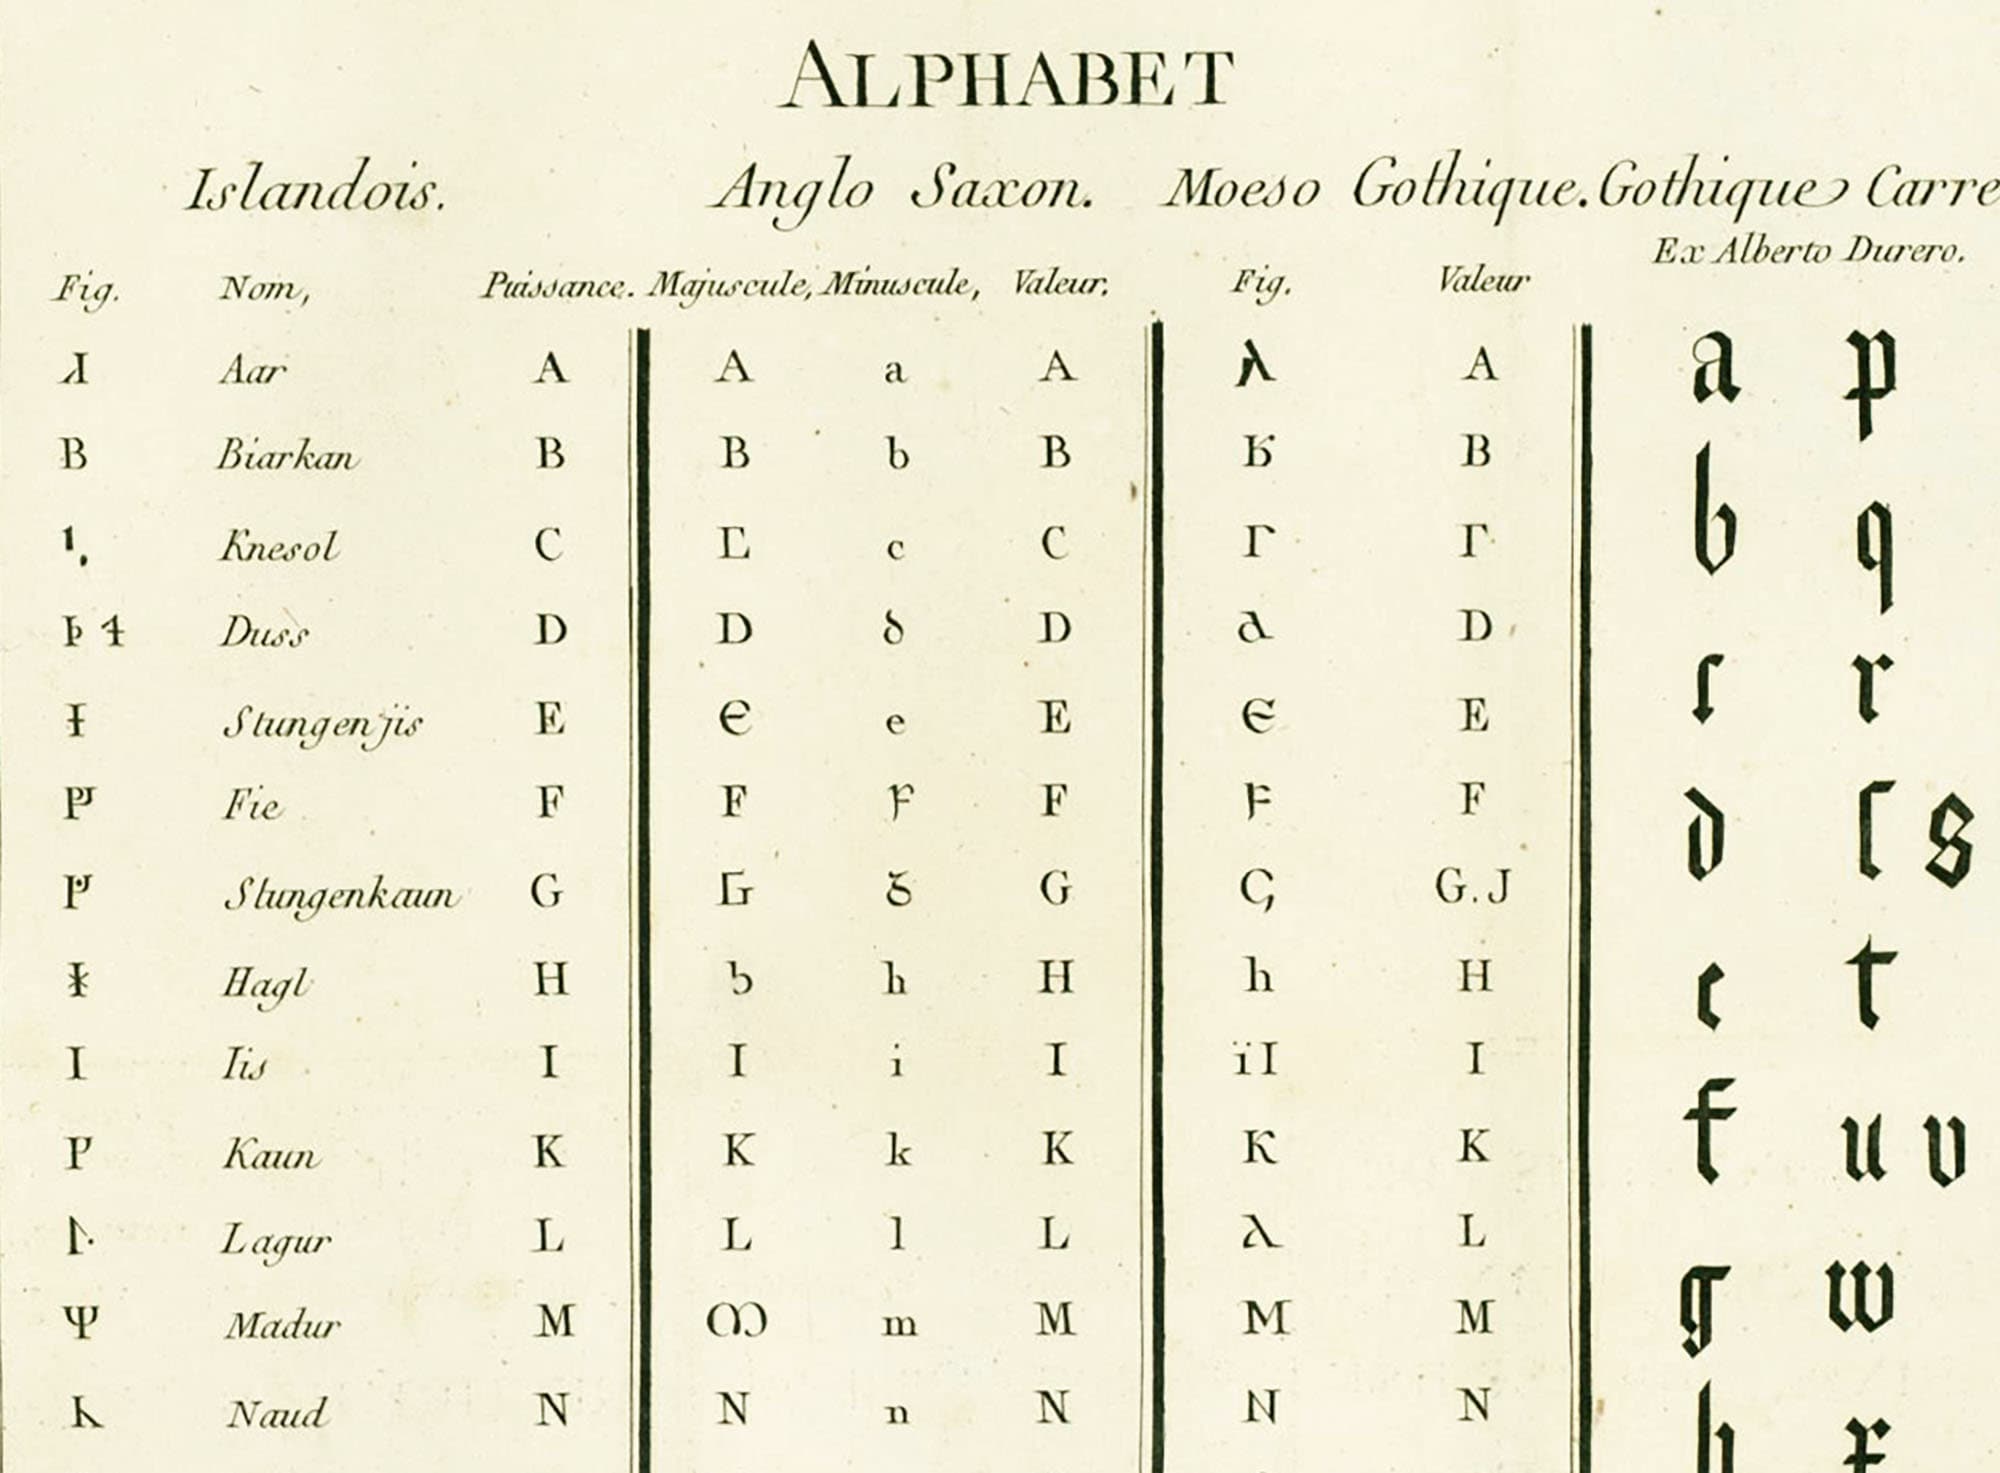 ALPHABET
Islandois. Anglo Saxon. Moeso Gothique. Gothique Carre
Ex Alberto Durero.
Fig. Nom, Puissance. Majuscule, Minuscule, Valeur. Fig. Valeur
Aar A A a A A a p
B Biarkan B B b B B b q
Knesol C C c C Γ Γ c r
Duss D D D D d ſ s
Stungenjis E E e E E e t
Fie F F F F f u v
Stungenkaun G G G G.J g w
Hagl H h H h H h x
I Iis I I i I ïI I
Kaun K K k K K K
Lagur L L l L L
Ψ Madur M M m M M M
Naud N N n N N N